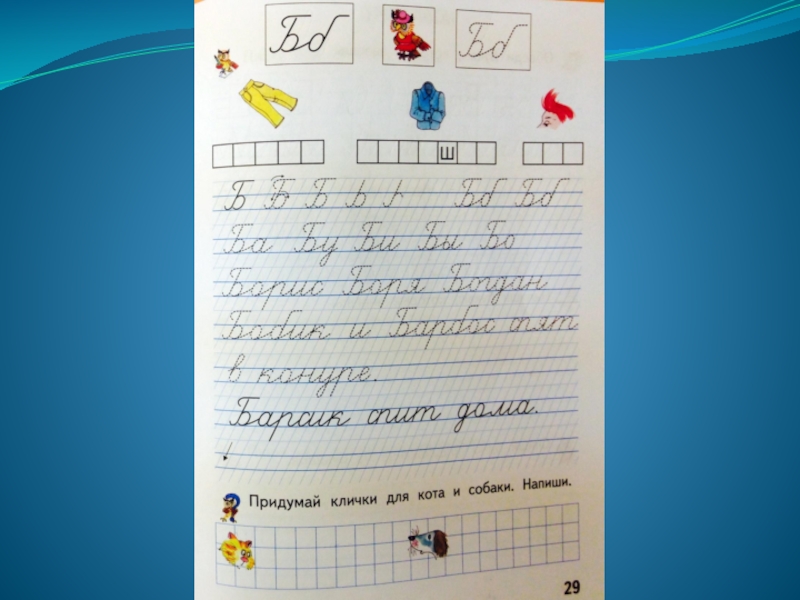 Бб Бб
ш
Б Б Б Ь Ь Бб Бб
Ба Бу Би Бы Бо
Борис Боря Богдан
Бобик и Барбос спят
в конуре.
Барсик спит дома.
Придумай клички для кота и собаки. Напиши.
29